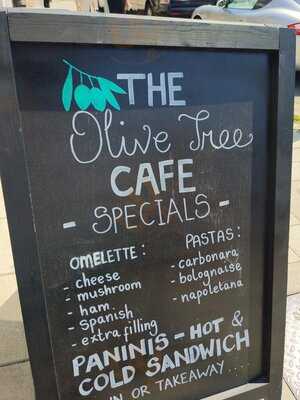 THE
Olive Tree
CAFE
- SPECIALS -
OMELETTE:
- cheese
- mushroom
- ham
- spanish
- extra filling
PASTAS:
- carbonara
- bolognaise
- napoletana
PANINIS - HOT &
COLD SANDWICH
IN OR TAKEAWAY...